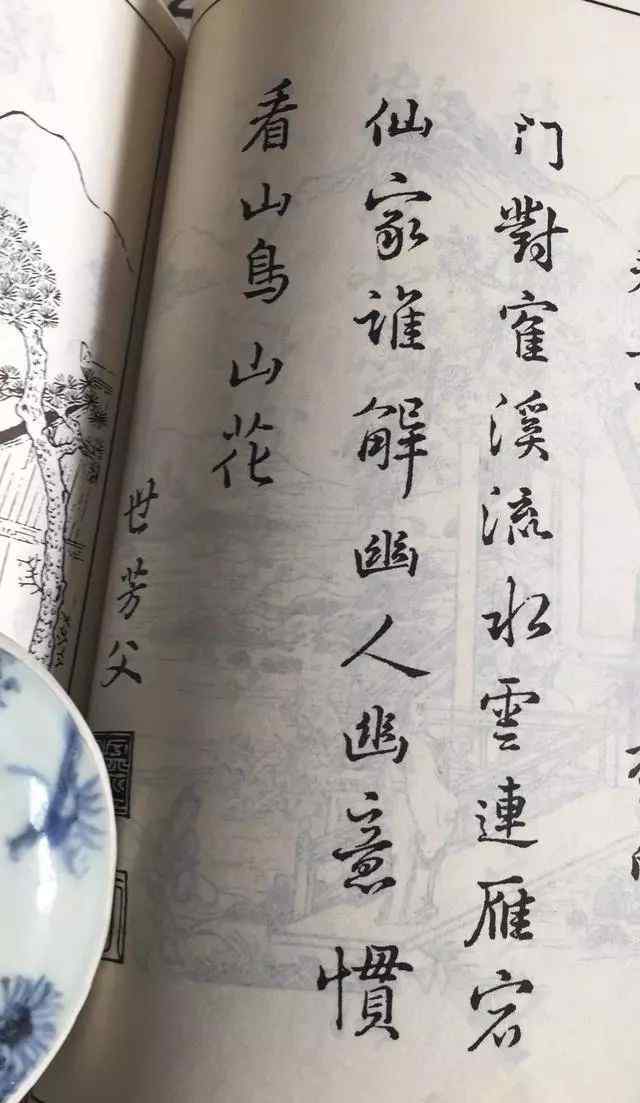 门對寉溪流水雲連雁宕
仙家誰解幽人幽意慣
看山鳥山花
世芳父